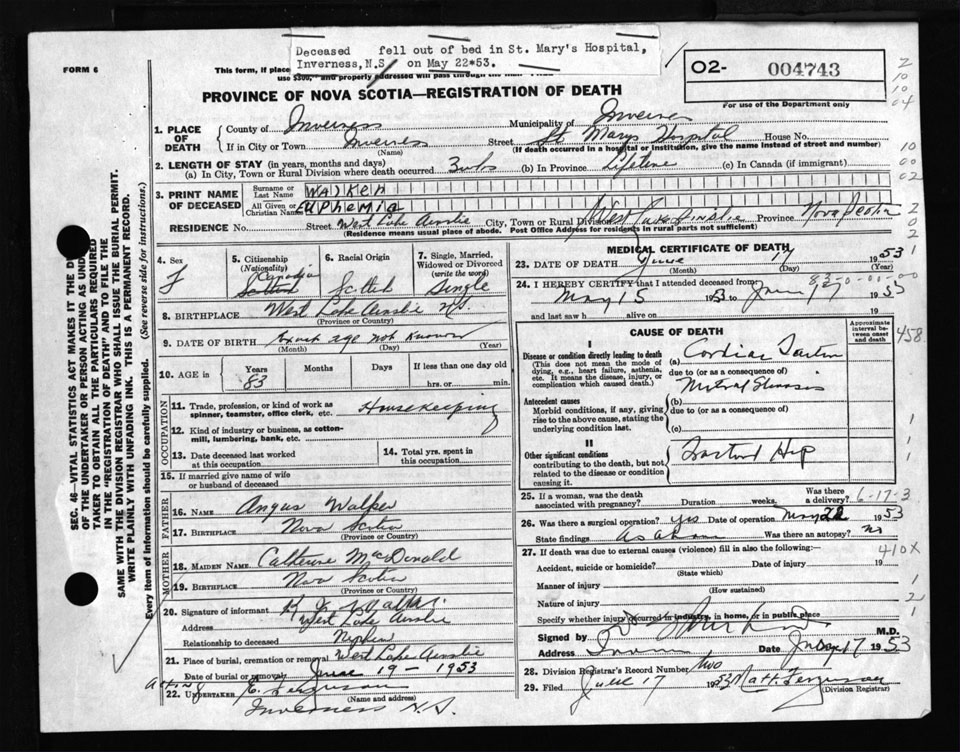 Deceased fell out of bed in St. Mary's Hospital,
Inverness, N.S. on May 22*53.
FORM 6
This form, if place
use $300, and properly addressed will pass through the
02- 004743
For use of the Department only
PROVINCE OF NOVA SCOTIA—REGISTRATION OF DEATH
1. PLACE OF DEATH
County of Inverness Municipality of Inverness
If in City or Town Inverness Street St Marys Hospital House No.
(Name) (If death occurred in a hospital or institution, give the name instead of street and number)
2. LENGTH OF STAY (in years, months and days)
(a) In City, Town or Rural Division where death occurred (b) In Province Lifetime (c) In Canada (if immigrant)
3. PRINT NAME OF DECEASED
Surname or Last Name WALKER
All Given or Christian Names EUPHEMIA
RESIDENCE No. Street West Lake Ainslie City, Town or Rural Division West Lake Ainslie Province Nova Scotia
(Residence means usual place of abode. Post Office Address for residents in rural parts not sufficient)
4. Sex
F
5. Citizenship (Nationality)
Canadian
6. Racial Origin
Scottish
7. Single, Married, Widowed or Divorced (write the word)
Single
8. BIRTHPLACE West Lake Ainslie N.S.
(Province or Country)
9. DATE OF BIRTH Exact age not known
(Month) (Day) (Year)
10. AGE in Years Months Days If less than one day old
83 hrs. or min.
OCCUPATION
11. Trade, profession, or kind of work as spinner, teamster, office clerk, etc. Housekeeping
12. Kind of industry or business, as cotton-mill, lumbering, bank, etc.
13. Date deceased last worked at this occupation
14. Total yrs. spent in this occupation
15. If married give name of wife or husband of deceased
FATHER
16. Name Angus Walker
17. Birthplace Nova Scotia
(Province or Country)
MOTHER
18. Maiden Name Catherine MacDonald
19. Birthplace Nova Scotia
(Province or Country)
20. Signature of informant
Address West Lake Ainslie
Relationship to deceased
21. Place of burial, cremation or removal West Lake Ainslie
Date of burial or removal June 19 - 1953
acting
22. Undertaker E. Ferguson
(Name and address)
Inverness N.S.
MEDICAL CERTIFICATE OF DEATH
23. DATE OF DEATH June 17 1953
(Month) (Day) (Year)
24. I HEREBY CERTIFY that I attended deceased from
May 15 1953 to June 17 1953
and last saw h alive on 19
CAUSE OF DEATH
Approximate interval between onset and death
I
Disease or condition directly leading to death
(This does not mean the mode of dying, e.g., heart failure, asthenia, etc. It means the disease, injury, or complication which caused death.)
(a) Cardiac
due to (or as a consequence of)
Mitral Stenosis
Antecedent causes
Morbid conditions, if any, giving rise to the above cause, stating the underlying condition last.
(b)
due to (or as a consequence of)
(c)
II
Other significant conditions
contributing to the death, but not related to the disease or condition causing it.
Fractured Hip
25. If a woman, was the death associated with pregnancy? Duration weeks. Was there a delivery?
6-17-3
26. Was there a surgical operation? yes Date of operation May 22 1953
State findings As above Was there an autopsy? No
27. If death was due to external causes (violence) fill in also the following:—
Accident, suicide or homicide? Date of injury 19
(State which)
Manner of injury
(How sustained)
Nature of injury
Specify whether injury occurred in industry, in home, or in public place
Signed by M.D.
Address Date June 17 1953
28. Division Registrar's Record Number two
29. Filed June 17 1953 Matt. Ferguson
(Division Registrar)
458
410X
SEC. 46—VITAL STATISTICS ACT MAKES IT THE DUTY
OF THE UNDERTAKER OR PERSON ACTING AS UNDERTAKER
TO OBTAIN ALL THE PARTICULARS REQUIRED
IN THE "REGISTRATION OF DEATH" AND TO FILE THE
SAME WITH THE DIVISION REGISTRAR WHO SHALL ISSUE THE BURIAL PERMIT.
WRITE PLAINLY WITH UNFADING INK. THIS IS A PERMANENT RECORD.
Every item of information should be carefully supplied. (See reverse side for instructions.)